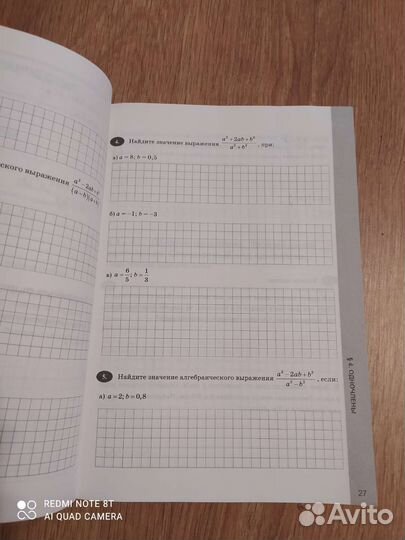 ского выражения a² − 2ab + b² / (a − b)(a +
4. Найдите значение выражения a² + 2ab + b² / a² + b² , при:
а) a = 8; b = 0,5
б) a = −1; b = −3
в) a = 6/5; b = 1/3
5. Найдите значение алгебраического выражения a² − 2ab + b² / a² − b² , если:
а) a = 2; b = 0,8
ОДНОЧЛЕНЫ
27
REDMI NOTE 8T
AI QUAD CAMERA
Avito